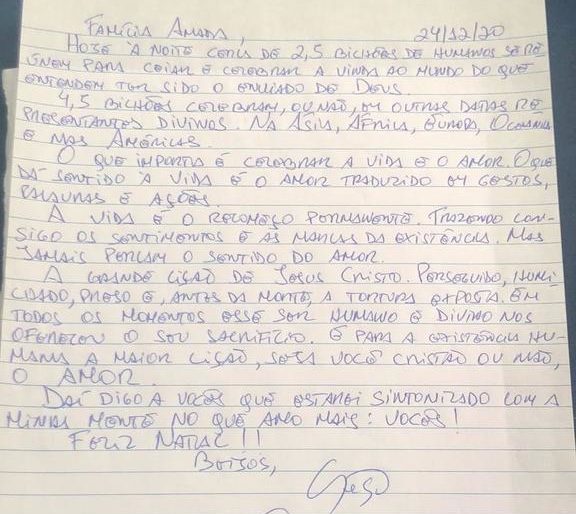 FAMÍLIA AMADA, 24/12/20
HOJE À NOITE CERCA DE 2,5 BILHÕES DE HUMANOS SE RE
ÚNEM PARA CEIAR E CELEBRAR A VINDA AO MUNDO DO QUE
ENTENDEM TER SIDO O ENVIADO DE DEUS.
4,5 BILHÕES CELEBRAM, OU NÃO, EM OUTRAS DATAS RE
PRESENTANTES DIVINOS. NA ÁSIA, ÁFRICA, EUROPA, OCEANIA
E NAS AMÉRICAS.
O QUE IMPORTA É CELEBRAR A VIDA E O AMOR. O QUE
DÁ SENTIDO À VIDA É O AMOR TRADUZIDO EM GESTOS,
PALAVRAS E AÇÕES.
A VIDA É O RECOMEÇO PERMANENTE. TRAZENDO CON-
SIGO OS SENTIMENTOS E AS MARCAS DA EXISTÊNCIA. MAS
JAMAIS PERCAM O SENTIDO DO AMOR.
A GRANDE LIÇÃO DE JESUS CRISTO. PERSEGUIDO, HUMI-
LHADO, PRESO E, ANTES DA MORTE, A TORTURA EXPOSTA. EM
TODOS OS MOMENTOS ESSE SER HUMANO E DIVINO NOS
OFERECEU O SEU SACRIFÍCIO. É PARA A EXISTÊNCIA HU-
MANA A MAIOR LIÇÃO, SEJA VOCÊ CRISTÃO OU NÃO,
O AMOR.
DAÍ DIGO A VOCÊS QUE ESTAREI SINTONIZADO COM A
MINHA MENTE NO QUE AMO MAIS: VOCÊS!
FELIZ NATAL!!
BEIJOS,